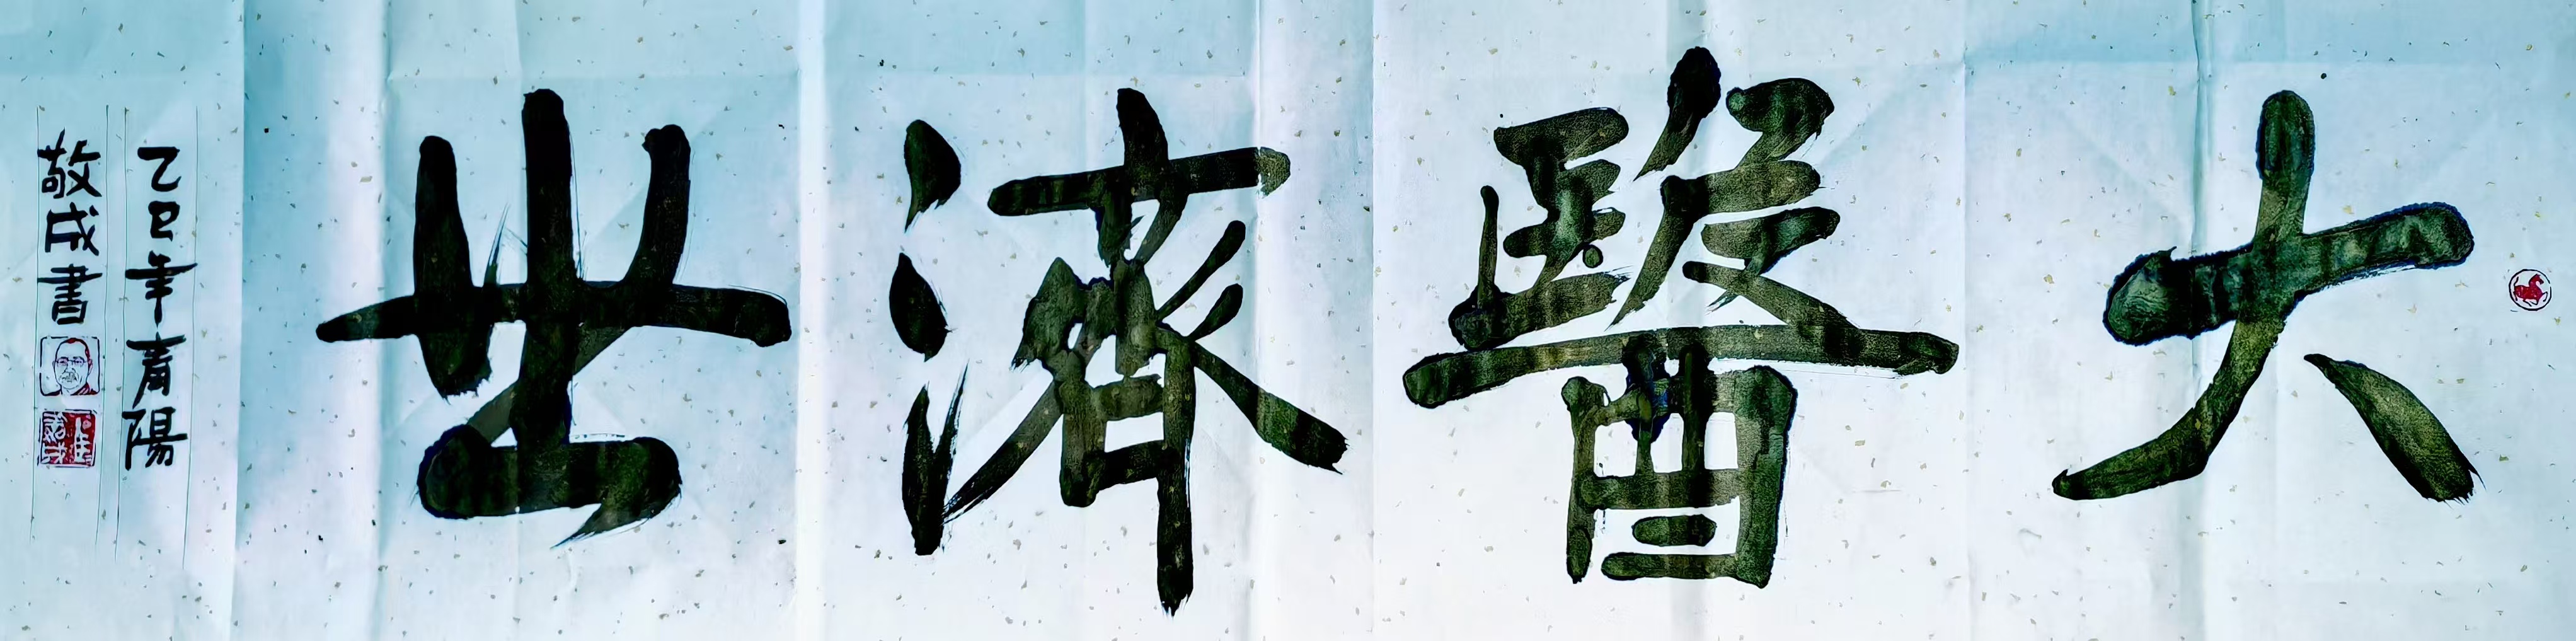 大醫濟世
乙巳年青陽
敬成書